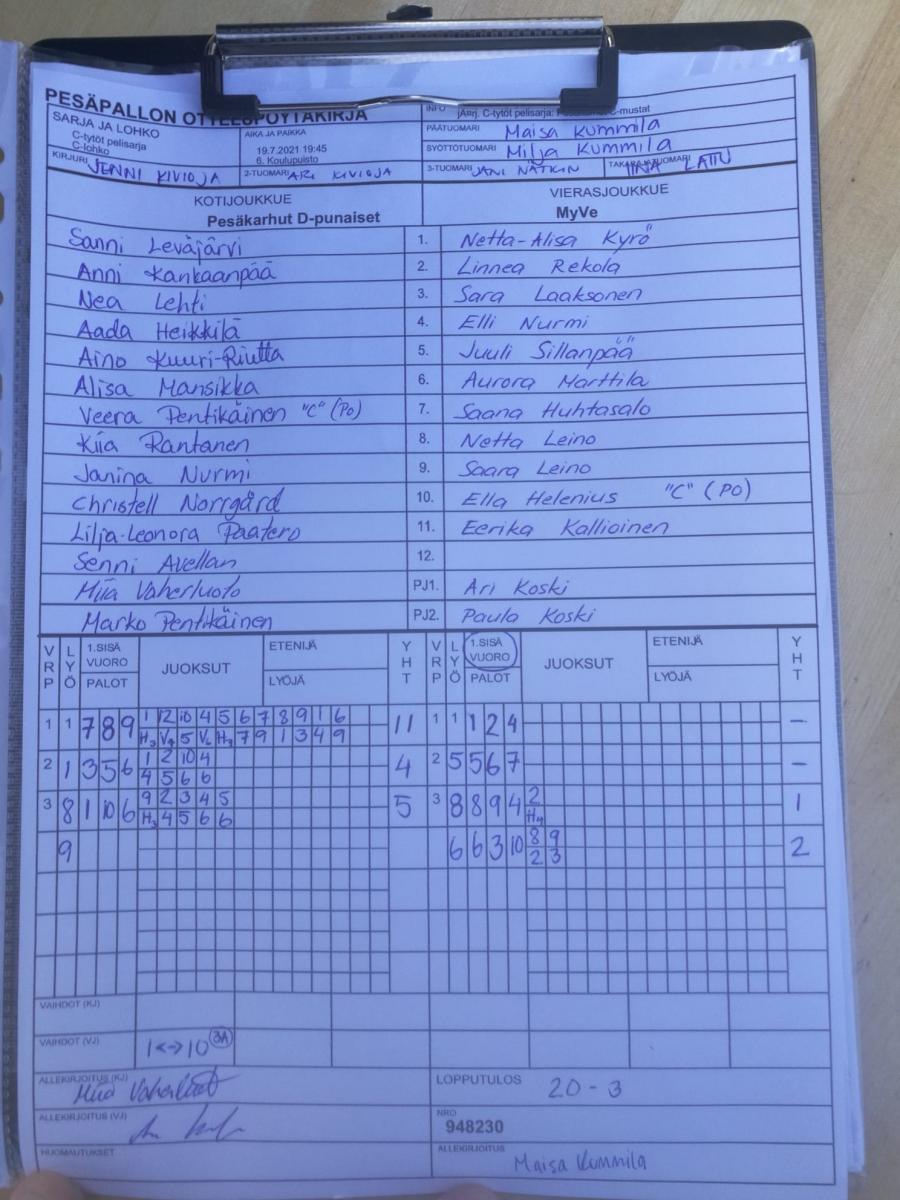 PESÄPALLON OTTELUPÖYTÄKIRJA
SARJA JA LOHKO
C-tytöt pelisarja
C-lohko
AIKA JA PAIKKA
19.7.2021 19:45
6. Koulupuisto
INFO
C-tytöt pelisarja:
PÄÄTUOMARI Maisa Kummila
SYÖTTÖTUOMARI Milja Kummila
KIRJURI JENNI KIVIOJA
2-TUOMARI ARI KIVIOJA
3-TUOMARI JANI NÄTKIN
TAKARAJATUOMARI TIINA LATTU
KOTIJOUKKUE
Pesäkarhut D-punaiset
VIERASJOUKKUE
MyVe
Sanni Leväjärvi 1. Netta-Alisa Kyrö
Anni Kankaanpää 2. Linnea Rekola
Nea Lehti 3. Sara Laaksonen
Aada Heikkilä 4. Elli Nurmi
Aino Kuuri-Riutta 5. Juuli Sillanpää
Alisa Mansikka 6. Aurora Marttila
Veera Pentikäinen "C" (PO) 7. Saana Huhtasalo
Kiia Rantanen 8. Netta Leino
Janina Nurmi 9. Saara Leino
Christell Norrgård 10. Ella Helenius "C" (PO)
Lilja-Leonora Paatero 11. Eerika Kallioinen
Senni Avellan 12.
Miia Vaherluoto PJ1. Ari Koski
Marko Pentikäinen PJ2. Paula Koski
VRP LYÖ 1.SISÄ VUORO PALOT JUOKSUT ETENIJÄ LYÖJÄ YHT VRP LYÖ 1.SISÄ VUORO PALOT JUOKSUT ETENIJÄ LYÖJÄ YHT
1 1 7 8 9 1 12 10 4 5 6 7 8 9 1 6 11 1 1 1 2 4 –
H3 V4 5 V6 H3 7 9 1 3 4 9
2 1 3 5 6 1 2 10 4 4 2 5 5 6 7 –
4 5 6 6
3 8 1 10 6 9 2 3 4 5 5 3 8 8 9 4 2 1
H3 4 5 6 6 H4
9 6 6 3 10 8 9 2
2 3
VAIHDOT (KJ)
VAIHDOT (VJ) 1<->10 3A
ALLEKIRJOITUS (KJ) Miia Vaherluoto
LOPPUTULOS 20 - 3
ALLEKIRJOITUS (VJ)
NRO
948230
HUOMAUTUKSET
ALLEKIRJOITUS Maisa Kummila